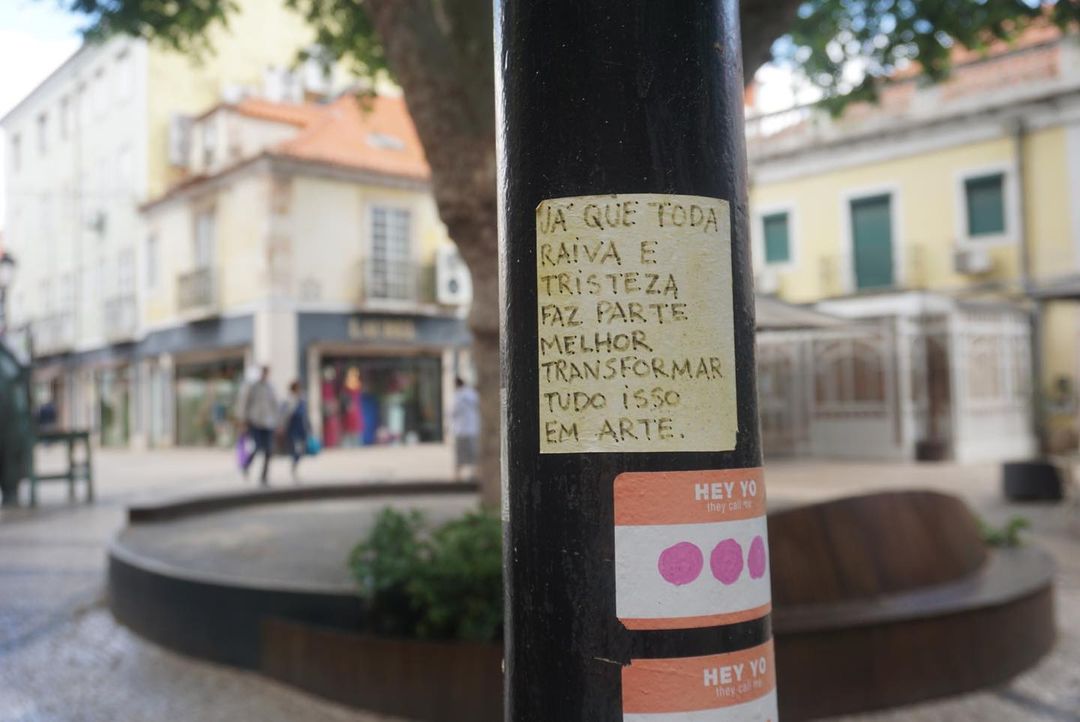 JÁ QUE TODA
RAIVA E
TRISTEZA
FAZ PARTE
MELHOR
TRANSFORMAR
TUDO ISSO
EM ARTE.
HEY YO
they call me
HEY YO
they call me